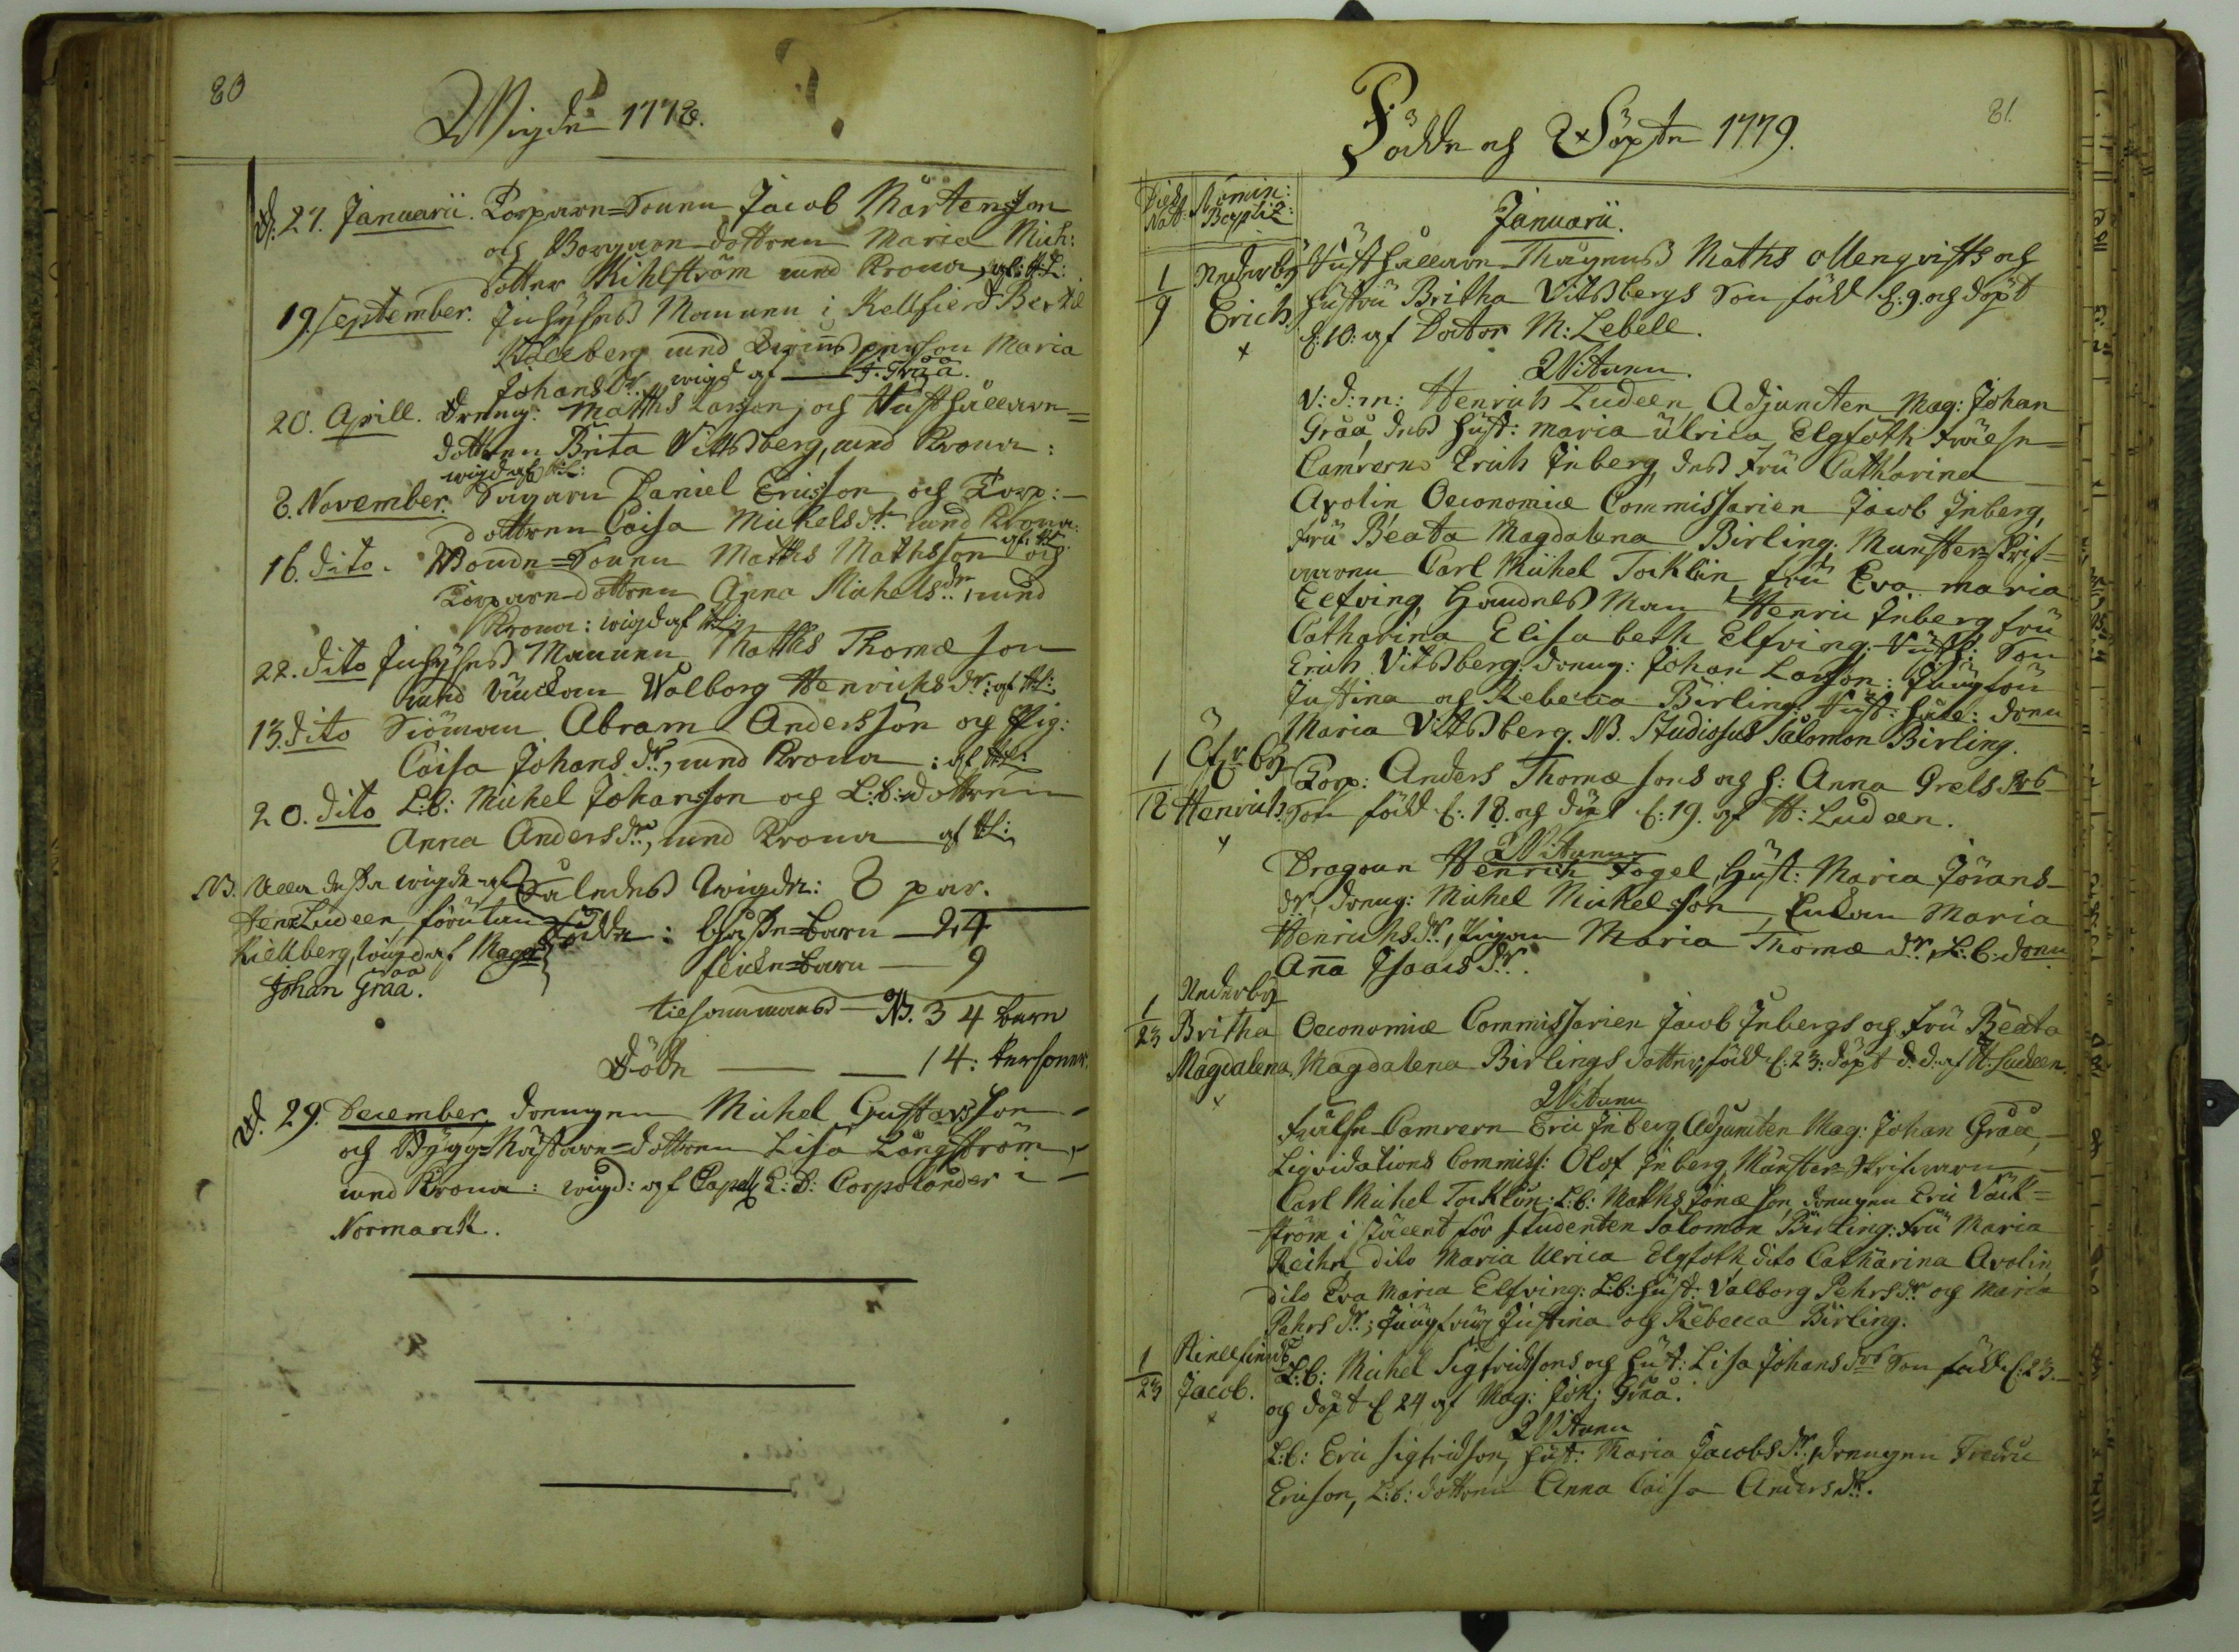 80
Wigde 1778.
d. 27. Januarii. Torparen=Sonen Jacob Mårtensson
och Borgaren dottren Maria Mich:
dotter Kihlström med Krona, af: H:L:
19. September. Inhyses Mannen i Kellfierd Bertil
Killeberg med Qwinspersson Maria
Johansdr wigd af — J. Gråå.
20. Aprill. dreng: Matths Larsson, och Rusthållaren=
dottren Brita Vittsberg, med Krona:
wigd af H:L:
8. November. Sagaren Daniel Ericsson och Torp:
dottren Caisa Michelsdr med Krona:
af: H:L:
16. dito. Bonde=Sonen Matths Mathsson och
Torparen dottren Anna Michelsdr, med
Krona: wigd af H:L:
22. dito Inhyses Mannen Matths Thomæ son
med Enckan Walborg Henrichsdr: af H:L:
13. dito Siöman Abram Andersson och Pig:
Caisa Johansdr, med Krona: af H:L:
20. dito L:b: Michel Johansson och L:b: dottren
Anna Andersdr, med Krona af H:L:
NB. Alla dessa wigde af Således Wigde: 8 par.
Hen: Ludeen, förutan födde: Gåsse=barn — 24
Kiellberg, wigd af Mag: flicke=barn — 9
Johan Gråå.
tilsammans — NB. 34 barn
Döde — 14: Personer.
d. 29. December, drengen Michel Gustavsson
och Bygg=Mästaren=dottren Lisa Långström,
med Krona: wigd: af Capell: L: D: Corpolander i
Normarck.
81.
Födde och Döpte 1779.
Dies Nat: Nomin: Baptiz:
Januarii.
1/9 Nederby Erich. Rusthållaren Thägenes Maths Mengvists och
hustru Britha Vittsbergs Son född d: 9. och döpt
d: 10: af Doctor M: Lebell.
Wittnen.
V: d: m: Henrich Ludeen, Adjuncten Mag: Johan
Gråå, dess hust: Maria Ulrica Elgfoth, Frälse=
Camreren Erich Inberg, dess Fru Catharina
Avolin, Oeconomiæ Commissarien Jacob Inberg,
Fru Beata Magdalena Birling, Munster=Skrif=
varen Carl Michel Tocklin, Fru Eva Maria
Elfving, Handels Man Henric Inberg, Fru
Catharina Elisabeth Elfving. Rusth: Son
Erich Vittsberg. dreng: Johan Larsson: Jungfru
Justina och Rebecca Birling. Rust: håll: dottren
Maria Vittsberg. NB. Studiosus Salomon Birling.
1/18 Öfverby Henrich. Torp: Anders Thomæ sons och h: Anna Grelsdrs
Son född d: 18. och döpt d: 19. af H: Ludeen.
Wittnen
Dragoun Henrich Fogel, Hust: Maria Jörans
dr, dreng: Michel Michelsson, Enkan Maria
Henrichsdr, Pigan Maria Thomædr. L:b: dottren
Aña Isaacsdr.
1/23 Nederby Britha Magdalena. Oeconomiæ Commissarien Jacob Inbergs och Fru Beata
Magdalena Birlings dotter, född d: 23: döpt d:d: af H: Ludeen.
Wittnen
Frälse=Camreren Eric Inberg, Adjuncten Mag: Johan Gråå,
Ligvidations Commiss: Olof Inberg, Munster=Skrifvaren
Carl Michel Tocklin: L:b: Maths Jonæ son, drengen Eric Väck=
ström i stället för Studenten Salomon Birling: Fru Maria
Reihn, dito Maria Ulrica Elgfoth, dito Catharina Avolin,
dito Eva Maria Elfving: L:b: hust: Valborg Pehrsdr och Maria
Pehrsdr; Jungfrur Justina och Rebecca Birling.
1/23 Kiellfierd Jacob. L:b: Michel Sigfridssons och hust: Lisa Johansdrs Son född d: 23.
och döpt d 24 af Mag: Joh: Gråå.
Wittnen
L:b: Eric Sigfridson, hust: Maria Jacobsdr. drengen Fredric
Ericson, L:b: dottren Anna Caisa Andersdr.